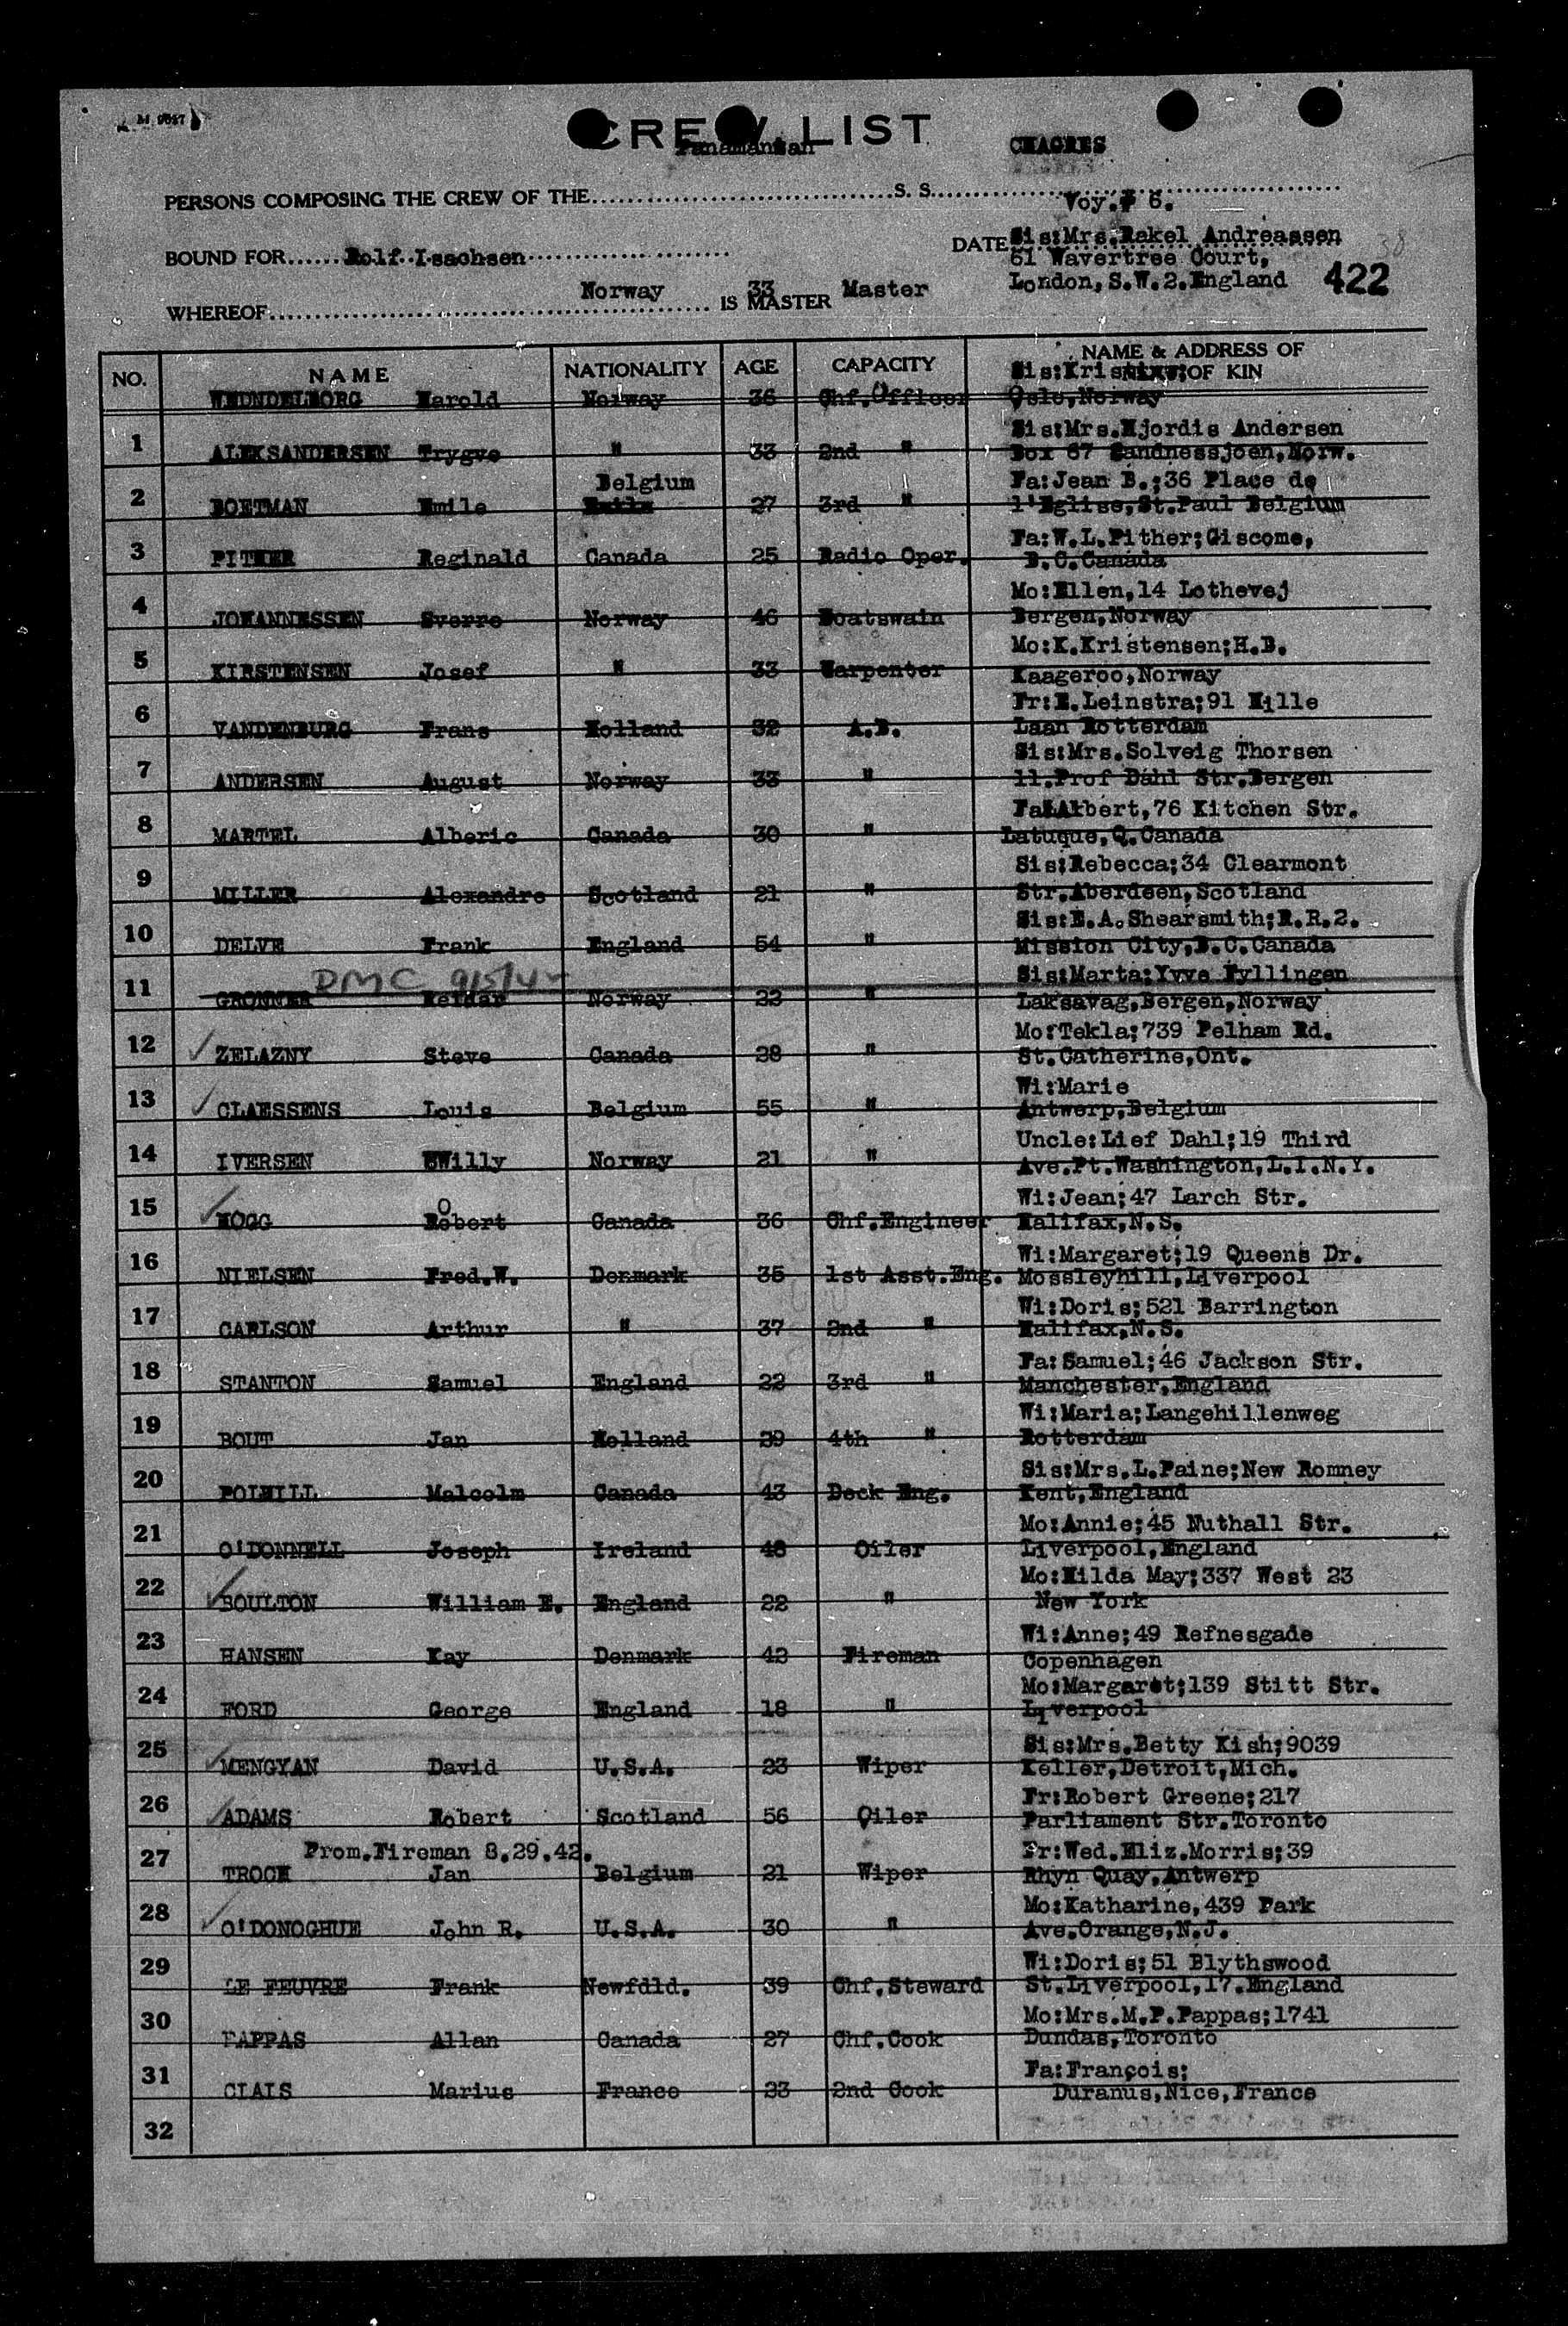 CREW LIST
Panamanian CHAGRES
PERSONS COMPOSING THE CREW OF THE S. S.
Voy.# 6.
BOUND FOR Rolf Isachsen DATE Sis:Mrs.Rakel Andreassen
61 Wavertree Court,
Norway 33 Master London, S.W.2.England 422
WHEREOF IS MASTER
NO. NAME NATIONALITY AGE CAPACITY NAME & ADDRESS OF
NEXT OF KIN
Sis:Kristine;
Harold Norway 36 Chf.Officer Oslo,Norway
1 Sis:Mrs.Hjordis Andersen
ALEKSANDERSEN Trygve " 33 2nd " Box 67 Sandnessjoen,Norw.
2 Belgium Fa:Jean B.;36 Place de
BOETMAN Emile 27 3rd " l'Eglise,St.Paul Belgium
3 Fa:W.L.Pither;Giscome,
PITHER Reginald Canada 25 Radio Oper. B.C.Canada
4 Mo:Ellen,14 Lothevej
JOHANNESSEN Sverre Norway 46 Boatswain Bergen,Norway
5 Mo:K.Kristensen;H.B.
KIRSTENSEN Josef " 33 Carpenter Kaageroo,Norway
6 Fr:E.Leinstra;91 Hille
VANDENBURG Frans Holland 32 A.B. Laan Rotterdam
7 Sis:Mrs.Solveig Thorsen
ANDERSEN August Norway 33 " 11.Prof Dahl Str.Bergen
8 Fa:Albert,76 Kitchen Str.
MARTEL Alberic Canada 30 " Latuque,Q.Canada
9 Sis:Rebecca;34 Clearmont
MILLER Alexandre Scotland 21 " Str.Aberdeen,Scotland
10 Sis:E.A.Shearsmith;R.R.2.
DELVE Frank England 54 " Mission City,B.C.Canada
11 DMC 9/5/42 Sis:Marta;Yvve Fyllingen
GRONNER Reidar Norway 22 " Laksavag,Bergen,Norway
12 Mo:Tekla;739 Pelham Rd.
ZELAZNY Steve Canada 28 " St.Catherine,Ont.
13 Wi:Marie
CLAESSENS Louis Belgium 55 " Antwerp,Belgium
14 Uncle:Lief Dahl;19 Third
IVERSEN Willy Norway 21 " Ave.Pt.Washington,L.I.N.Y.
15 Wi:Jean;47 Larch Str.
HOGG Robert Canada 36 Chf.Engineer Halifax,N.S.
16 Wi:Margaret;19 Queens Dr.
NIELSEN Fred.W. Denmark 35 1st Asst.Eng. Mossleyhill,Liverpool
17 Wi:Doris;521 Barrington
CARLSON Arthur " 37 2nd " Halifax,N.S.
18 Fa:Samuel;46 Jackson Str.
STANTON Samuel England 22 3rd " Manchester,England
19 Wi:Maria;Langehillenweg
BOUT Jan Holland 39 4th " Rotterdam
20 Sis:Mrs.L.Paine;New Romney
POLHILL Malcolm Canada 43 Deck Eng. Kent,England
21 Mo:Annie;45 Nuthall Str.
O'DONNELL Joseph Ireland 48 Oiler Liverpool,England
22 Mo:Hilda May;337 West 23
BOULTON William E. England 22 " New York
23 Wi:Anne;49 Refnesgade
HANSEN Kay Denmark 42 Fireman Copenhagen
24 Mo:Margaret;139 Stitt Str.
FORD George England 18 " Liverpool
25 Sis:Mrs.Betty Kish;9039
MENGYAN David U.S.A. 23 Wiper Keller,Detroit,Mich.
26 Fr:Robert Greene;217
ADAMS Robert Scotland 56 Oiler Parliament Str.Toronto
27 Prom.Fireman 8.29.42. Fr:Wed.Eliz.Morris;39
TROCH Jan Belgium 21 Wiper Rhyn Quay,Antwerp
28 Mo:Katharine,439 Park
O'DONOGHUE John R. U.S.A. 30 " Ave.Orange,N.J.
29 Wi:Doris;51 Blythswood
LE FEUVRE Frank Newfdld. 39 Chf.Steward St.Liverpool,17.England
30 Mo:Mrs.M.P.Pappas;1741
PAPPAS Allan Canada 27 Chf.Cook Dundas,Toronto
31 Fa:François;
CIAIS Marius France 23 2nd Cook Duranus,Nice,France
32